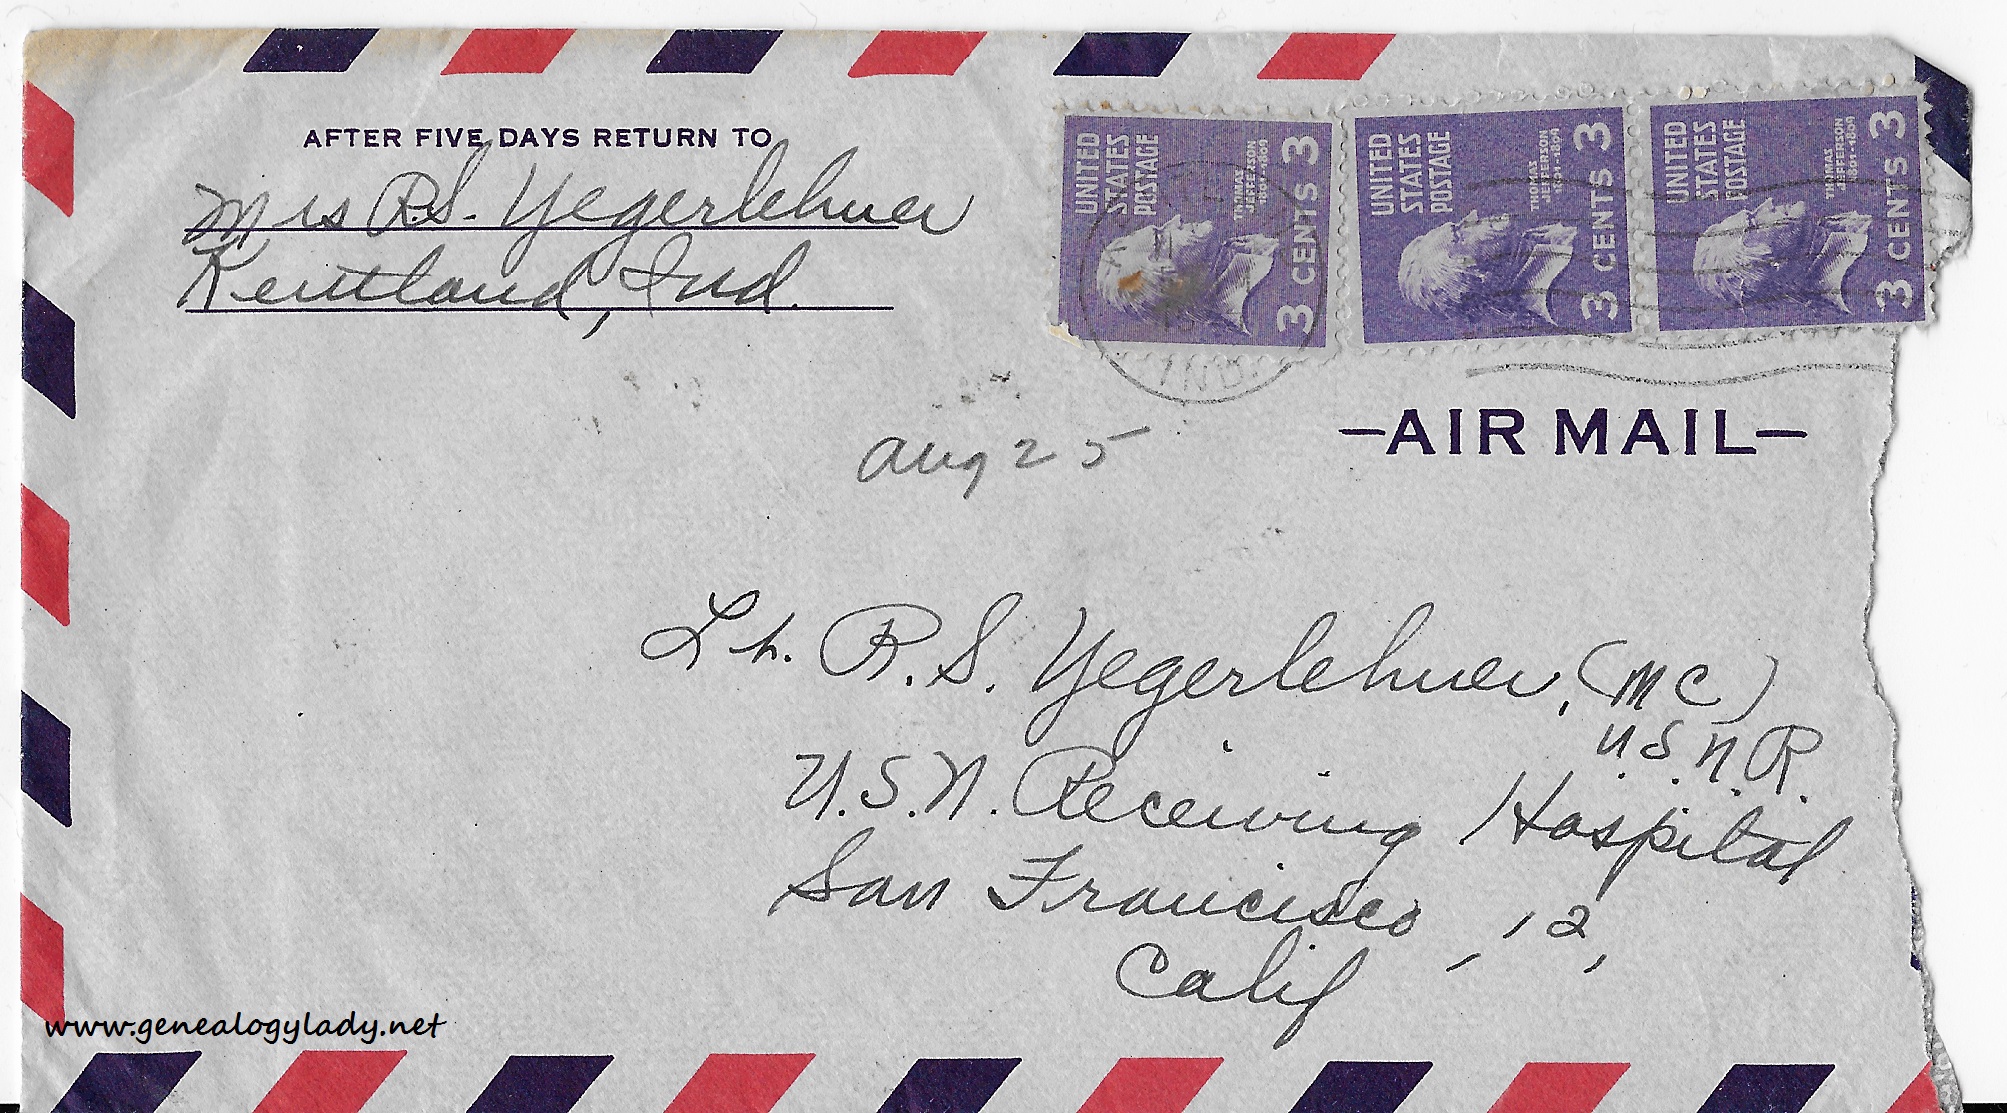 AFTER FIVE DAYS RETURN TO
Mrs R.S. Yegerlehner
Kentland, Ind.
UNITED STATES POSTAGE
THOMAS JEFFERSON 1801-1809
3 CENTS 3
UNITED STATES POSTAGE
THOMAS JEFFERSON 1801-1809
3 CENTS 3
UNITED STATES POSTAGE
THOMAS JEFFERSON 1801-1809
3 CENTS 3
IND.
—AIR MAIL—
Aug 25
Lt. R.S. Yegerlehner, (MC)
U.S.N.R.
U.S.N. Receiving Hospital
San Francisco, 12,
Calif
www.genealogylady.net